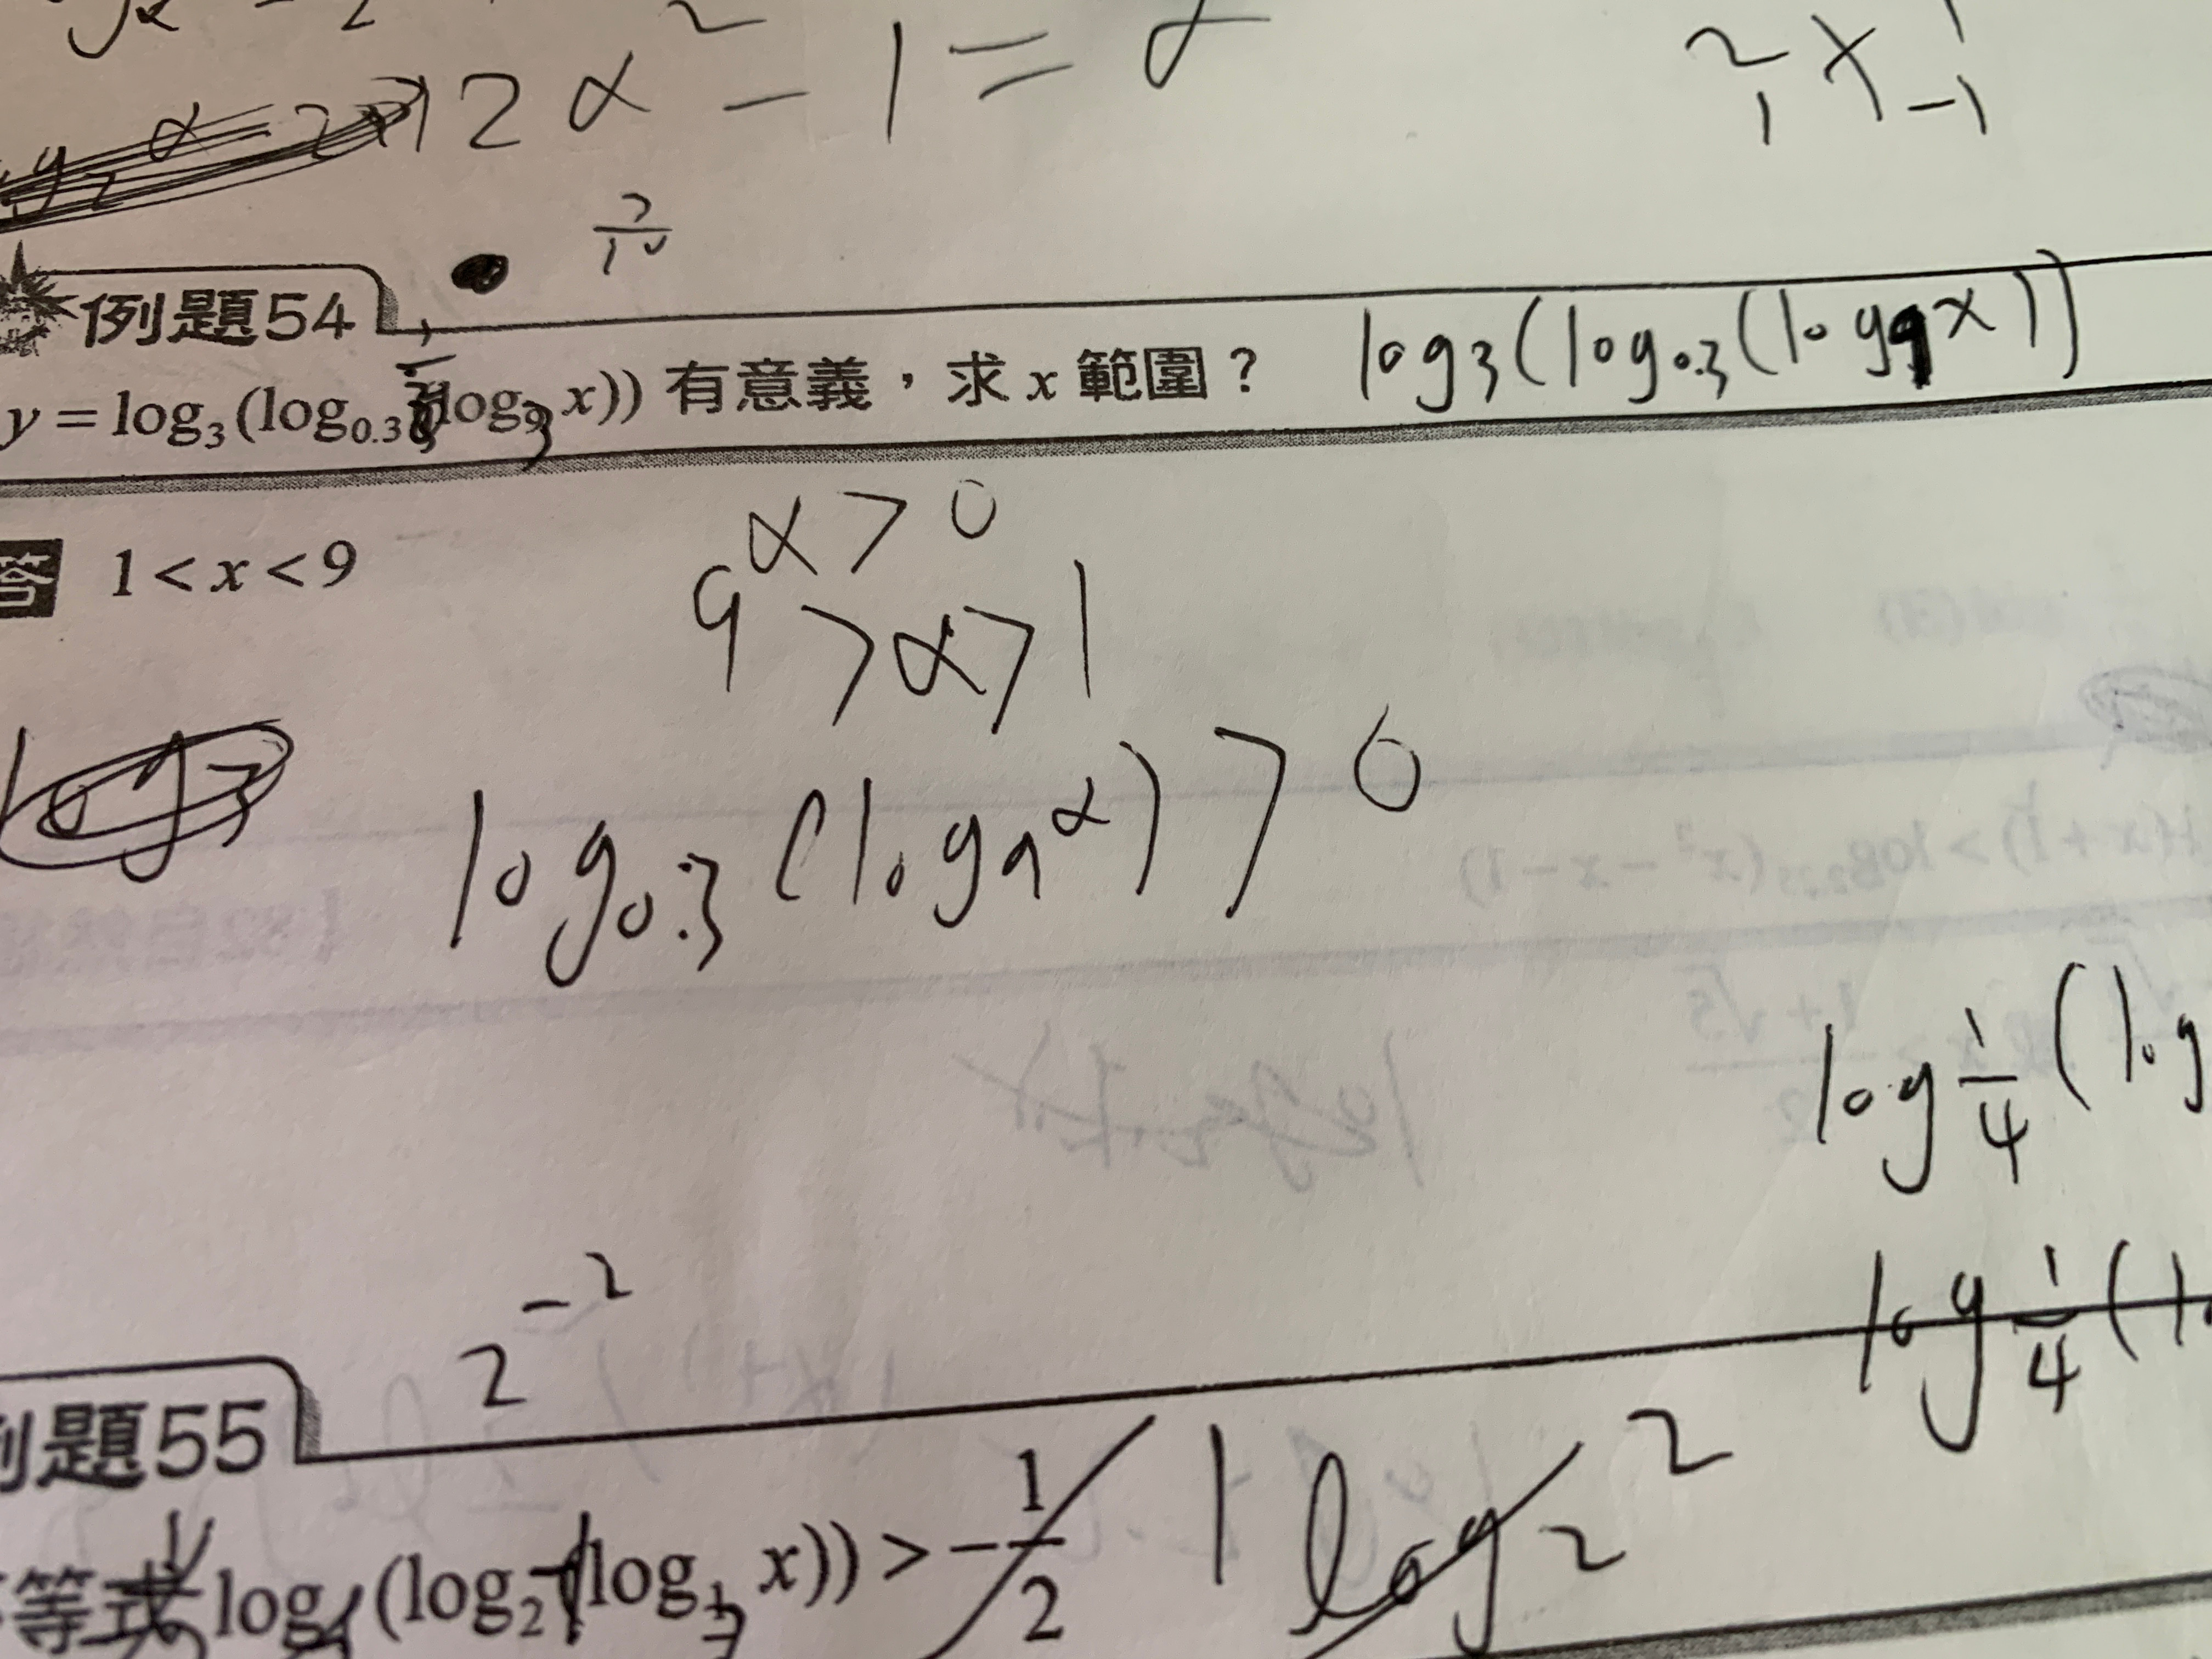 2α² - 1 = α
2 1
1 -1
例題54
y = log₃(log₀.₃(log₉ x)) 有意義，求 x 範圍？ log₃(log₀.₃(log₉x))
答 1 < x < 9
α > 0
9 > α > 1
log₀.₃(log₉α) > 0
log 1/4 (log
2⁻²
log 1/4 (
例題55
等式 log (log₂(log x)) > -1/2 1 log₂ 2